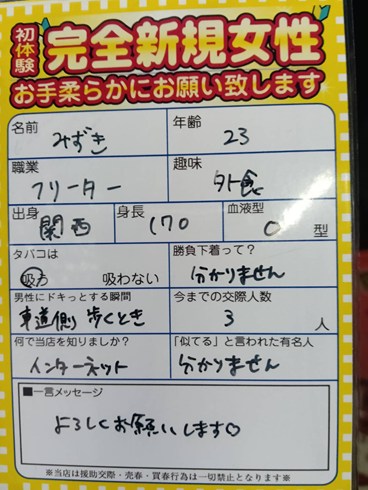 初体験 完全新規女性
お手柔らかにお願い致します
名前 みずき 年齢 23
職業 フリーター 趣味 外食
出身 関西 身長 170 血液型 O 型
タバコは 吸う 吸わない 勝負下着って? 分かりません
男性にドキっとする瞬間 車道側 歩くとき 今までの交際人数 3 人
何で当店を知りましたか? インターネット 「似てる」と言われた有名人 分かりません
■一言メッセージ
よろしくお願いします♡
※当店は援助交際・売春・買春行為は一切禁止となります※